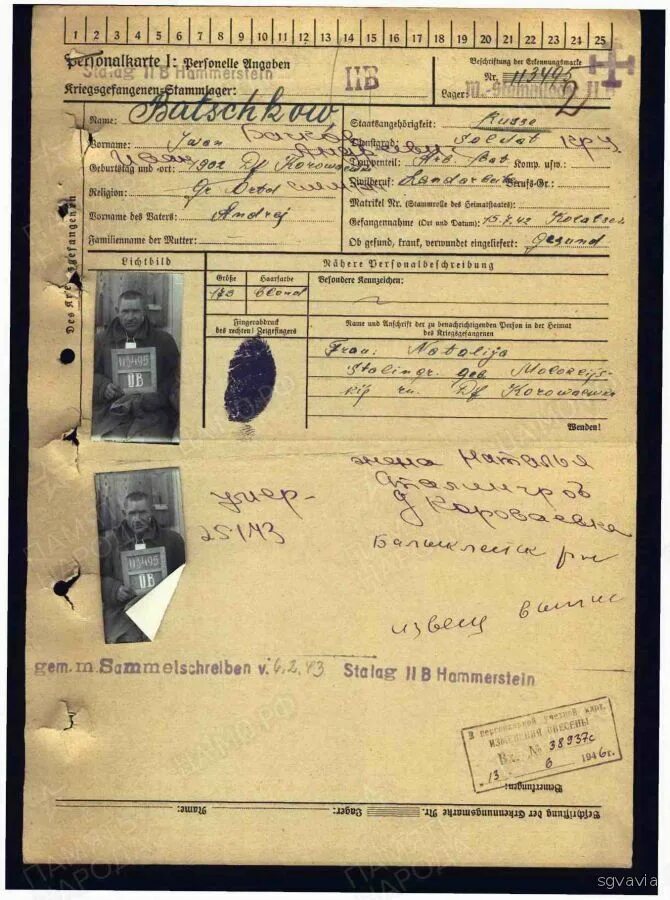 1 2 3 4 5 6 7 8 9 10 11 12 13 14 15 16 17 18 19 20 21 22 23 24 25
Personalkarte I: Personelle Angaben
Stalag II B Hammerstein
Kriegsgefangenen-Stammlager:
IIB
Beschriftung der Erkennungsmarke
Nr. 113495
Lager:
2
Des Kriegsgefangenen
Name: Batschkow
Бачков
Vorname: Iwan
Иван
Geburtstag und -ort: 1902 Df Korowaewka
Religion: Gr. Ortod
Vorname des Vaters: Andrej
Familienname der Mutter:
Staatsangehörigkeit: Russe
Dienstgrad: Soldat
Truppenteil: Arb Bat Komp. usw.:
Zivilberuf: Landarbeiter Berufs-Gr.:
Matrikel Nr. (Stammrolle des Heimatstaates):
Gefangennahme (Ort und Datum): 15.7.42
Ob gesund, krank, verwundet eingeliefert: gesund
Lichtbild
Nähere Personalbeschreibung
Größe Haarfarbe Besondere Kennzeichen:
173 blond
Fingerabdruck
des rechten Zeigefingers
Name und Anschrift der zu benachrichtigenden Person in der Heimat
des Kriegsgefangenen
Frau: Natalija
Stalingr. geb
Df Korowaewka
Wenden!
113495
IIB
жена Наталья
Сталингров
д Короваевка
Балыклейск р-н
умер-
25/1 43
113495
IIB
извещ
gem. m. Sammelschreiben v. 6.2.43 Stalag II B Hammerstein
В персональной учетной карт.
ИЗМЕНЕНИЯ ВНЕСЕНЫ
Вх. № 38937с
13 6 1946г.
Bemerkungen:
Beschriftung der Erkennungsmarke Nr. Lager: Name:
ПАМЯТЬ НАРОДА
ПАМЯТЬ НАРОДА
sgvavia